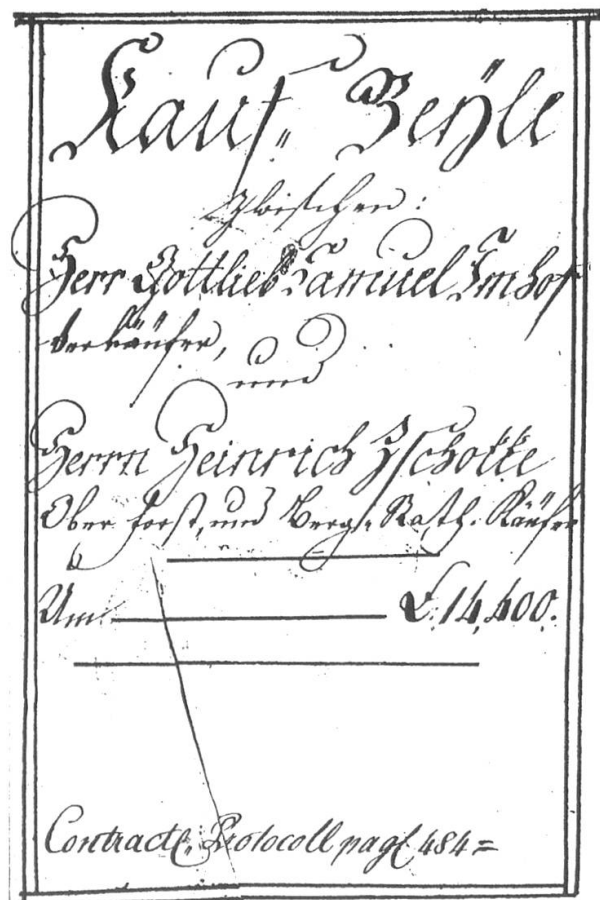 Kauf- Beÿle
Zwischen:
Herr Gottlieb Samuel Imhof
Verkäufer,
und
Herrn Heinrich Zschokke
Ober Forst, und Berg- Rath. Käufer
Um £. 14,400.
Contracte, Protocoll pag. 484=